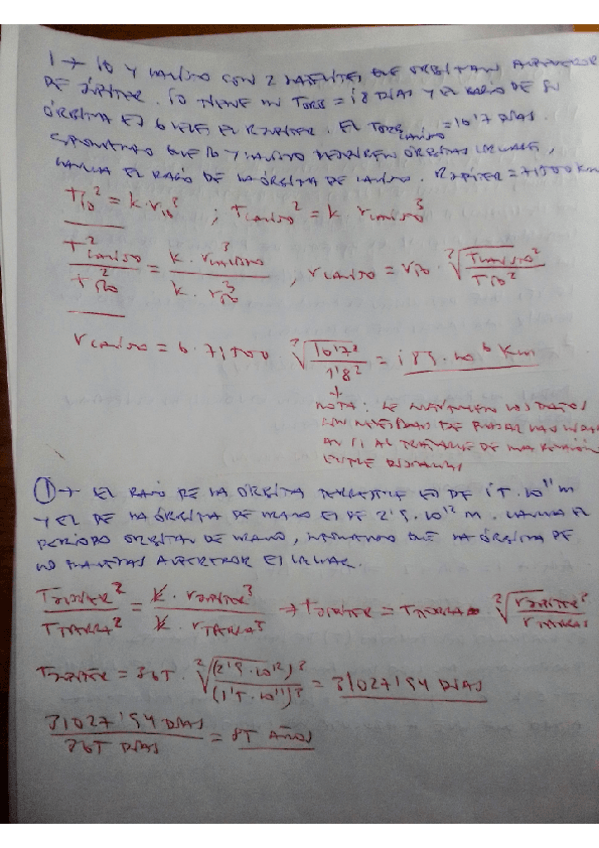 1 → IO Y CALISTO SON 2 SATÉLITES QUE ORBITAN ALREDEDOR
DE JÚPITER. IO TIENE UN TORB = 1'8 DÍAS Y EL RADIO DE SU
ÓRBITA ES 6 VECES EL RJÚPITER. EL TORB CALISTO = 16'7 DÍAS.
SUPONIENDO QUE IO Y CALISTO DESCRIBEN ÓRBITAS CIRCULARES,
CALCULA EL RADIO DE LA ÓRBITA DE CALISTO. RJÚPITER = 71500 Km
TIO² = K·rIO³ ; TCALISTO² = K·rCALISTO³
TCALISTO² / TIO² = K·rCALISTO³ / K·rIO³ , rCALISTO = rIO · ³√(TCALISTO² / TIO²)
rCALISTO = 6·71500 · ³√(16'7² / 1'8²) = 1'89·10⁶ Km
NOTA: SE LOS DATOS
SIN NECESIDAD DE PASAR LAS UDS
AL S.I. AL TRATARSE DE UNA RELACIÓN
ENTRE
① → EL RADIO DE LA ÓRBITA TERRESTRE ES DE 1'5·10¹¹ m
Y EL DE LA ÓRBITA DE URANO ES DE 2'9·10¹² m. CALCULA EL
PERÍODO ORBITAL DE URANO, SUPONIENDO QUE LA ÓRBITA DE
LOS PLANETAS ALREDEDOR ES CIRCULAR.
TJÚPITER² / TTIERRA² = K·rJÚPITER³ / K·rTIERRA³ → TJÚPITER = TTIERRA · ²√(rJÚPITER³ / rTIERRA³)
TJÚPITER = 365 · ²√((2'9·10¹²)³ / (1'5·10¹¹)³) = 31027'94 DÍAS
31027'94 DÍAS / 365 DÍAS = 85 AÑOS